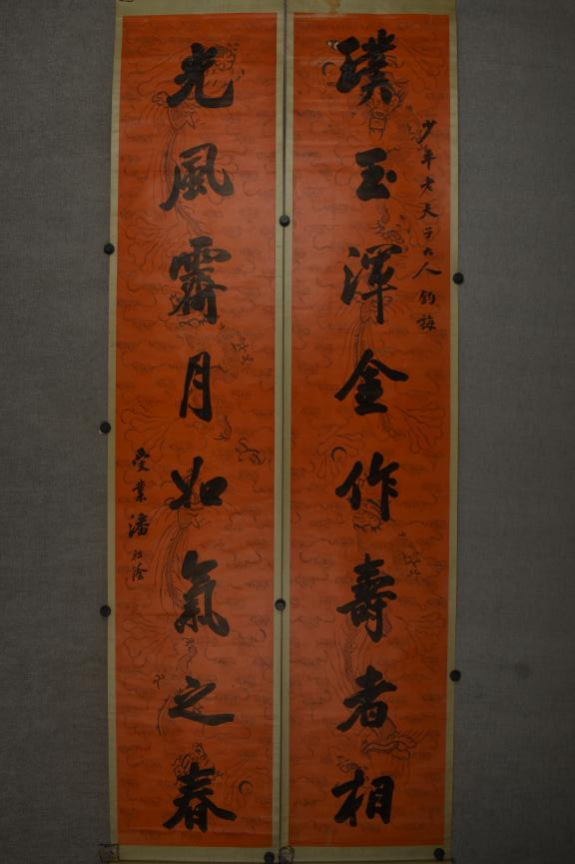 璞玉浑金作壽者相
少平老夫子大人 鈞誨
光風霽月如氣之春
受業潘祖蔭